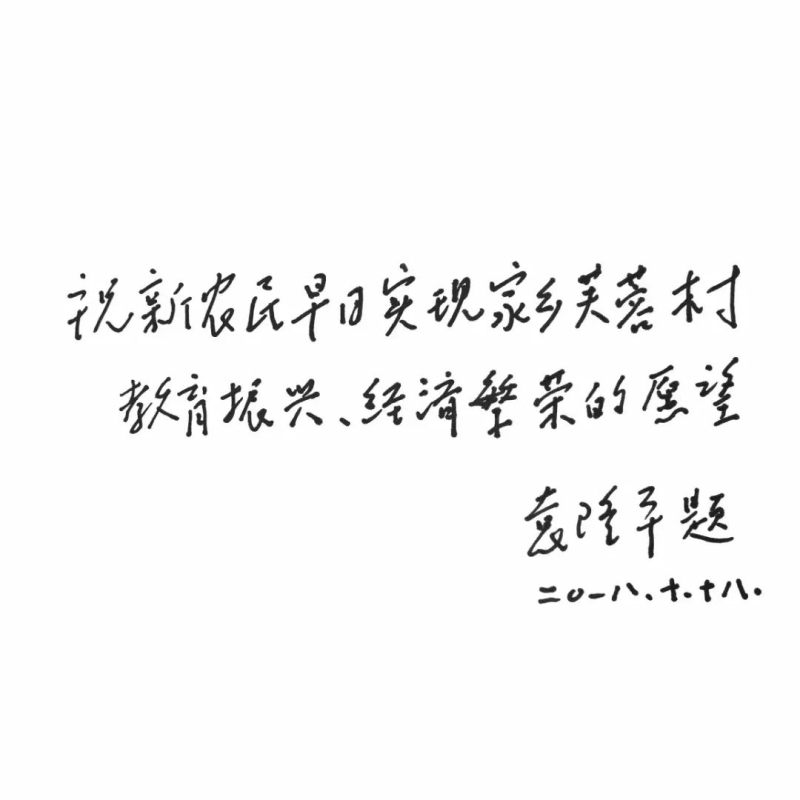 祝新农民早日实现家乡芙蓉村
教育振兴、经济繁荣的愿望
袁隆平题
二〇一八.十.十八.